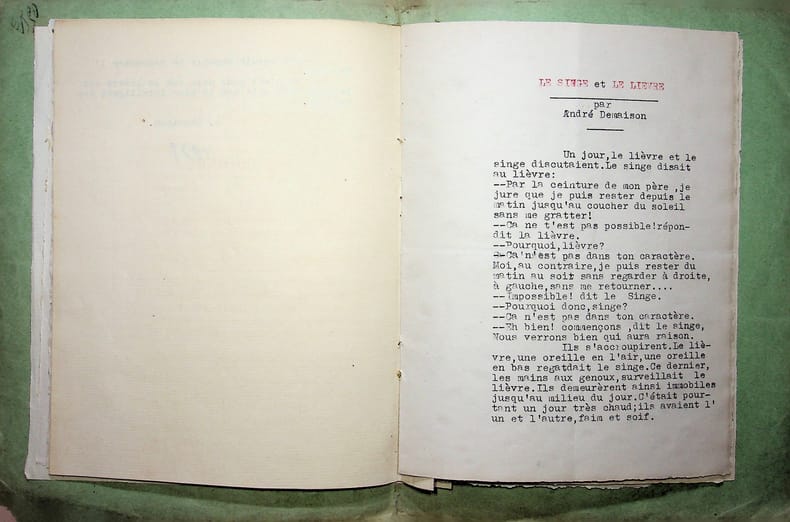 LE SINGE et LE LIEVRE
par
André Demaison
Un jour,le lièvre et le
singe discutaient.Le singe disait
au lièvre:
--Par la ceinture de mon père ,je
jure que je puis rester depuis le
matin jusqu'au coucher du soleil
sans me gratter!
--Ca ne t'est pas possible!répon-
dit la lièvre.
--Pourquoi,lièvre?
--Ca'n'est pas dans ton caractère.
Moi,au contraire,je puis rester du
matin au soit sans regarder à droite,
à gauche,sans me retourner....
--Impossible! dit le Singe.
--Pourquoi donc,singe?
--Ca n'est pas dans ton caractère.
--Eh bien! commençons ,dit le singe,
Nous verrons bien qui aura raison.
Ils s'accroupirent.Le liè-
vre,une oreille en l'air,une oreille
en bas regatdait le singe.Ce dernier,
les mains aux genoux,surveillait le
lièvre.Ils demeurèrent ainsi immobiles
jusqu'au milieu du jour.C'était pour-
tant un jour très chaud;ils avaient l'
un et l'autre,faim et soif.